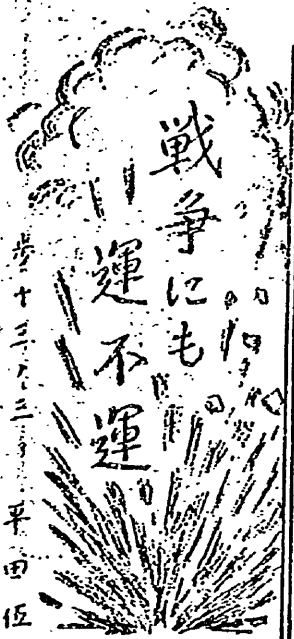 戦争にも
運不運
歩十三ノ三 平田伍